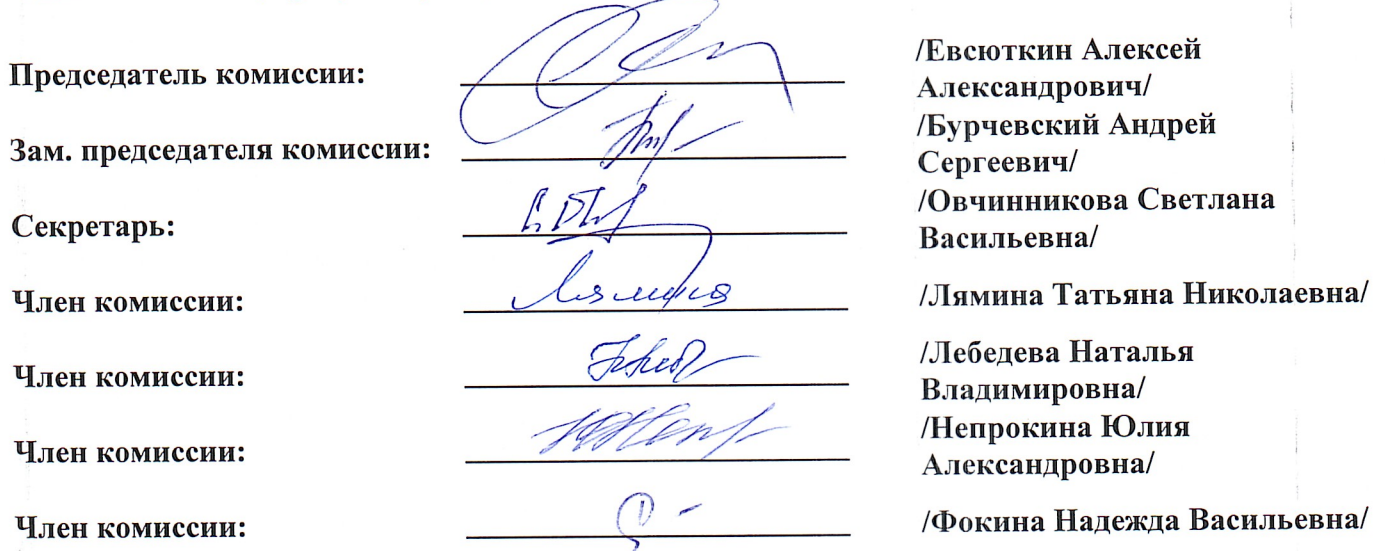 Председатель комиссии: /Евсюткин Алексей
Александрович/
Зам. председателя комиссии: /Бурчевский Андрей
Сергеевич/
Секретарь: /Овчинникова Светлана
Васильевна/
Член комиссии: Лямина /Лямина Татьяна Николаевна/
Член комиссии: /Лебедева Наталья
Владимировна/
Член комиссии: /Непрокина Юлия
Александровна/
Член комиссии: /Фокина Надежда Васильевна/